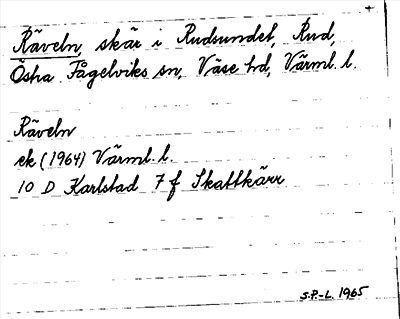 Räveln, skär i Rudsundet, Rud,
Östra Fågelviks sn, Väse hd, Värml. l.
Räveln
ek (1964) Värml. l.
10 D Karlstad 7 f Skattkärr
S.P.-L. 1965